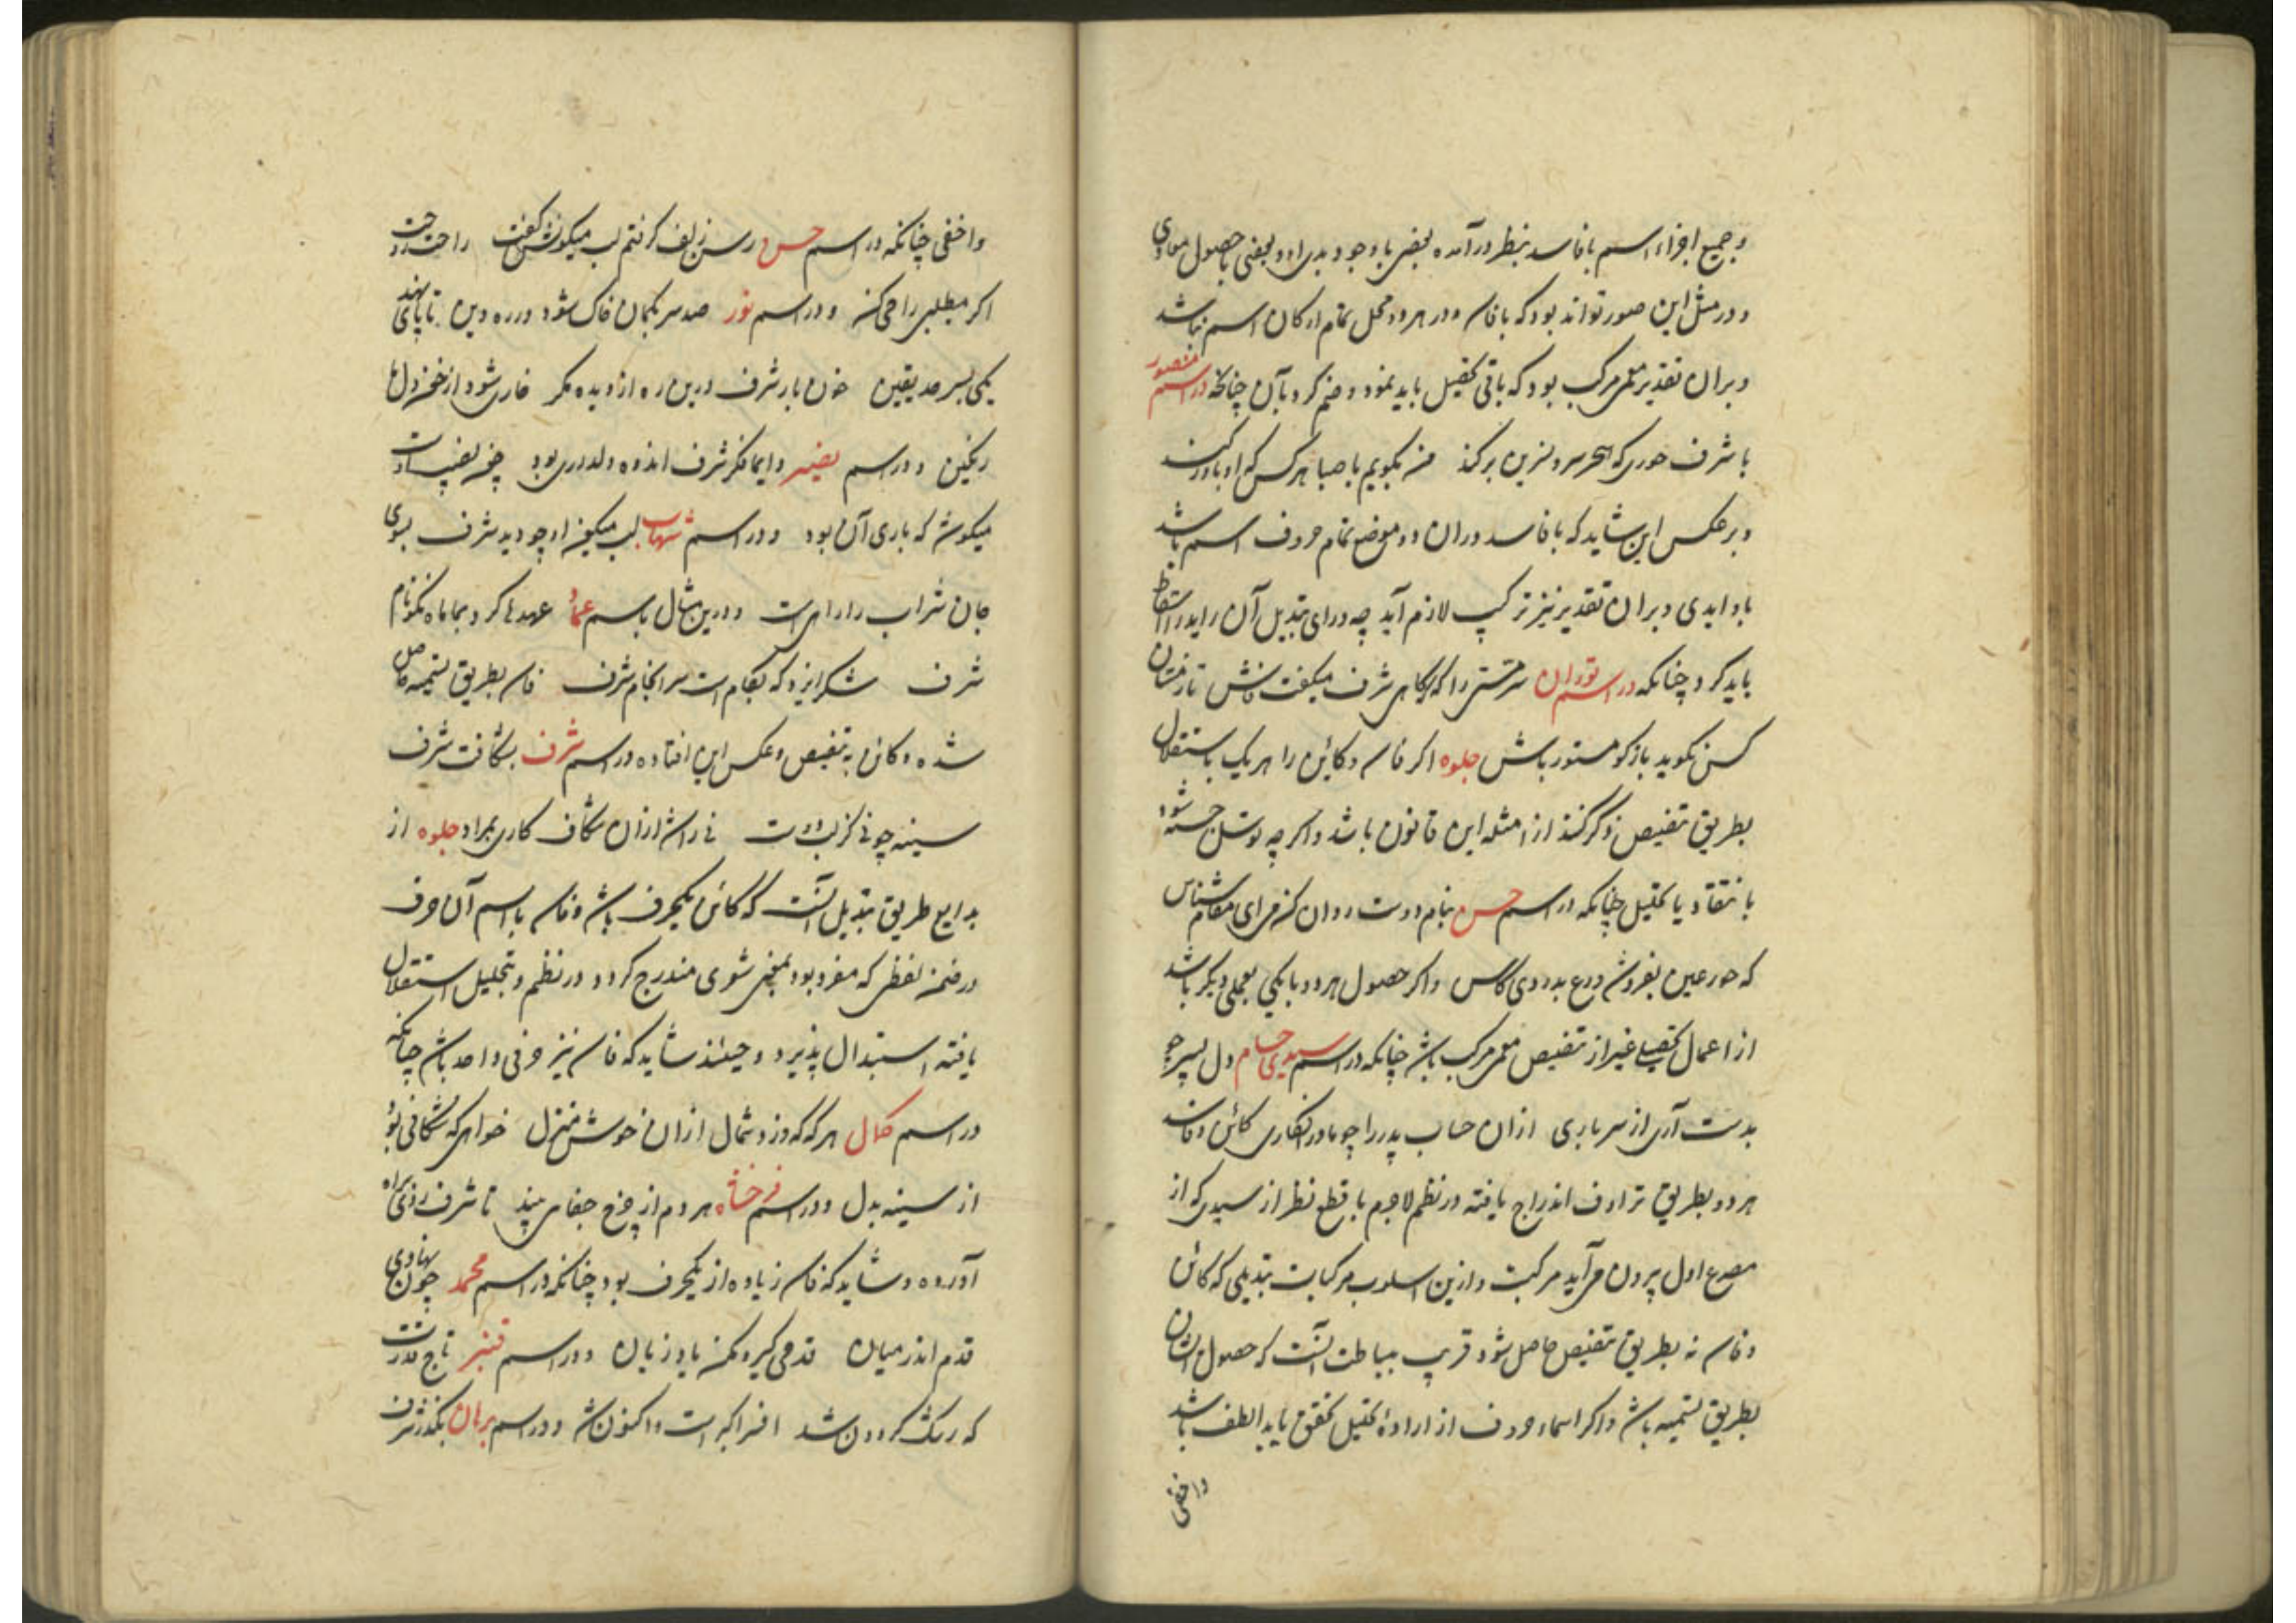 و جمیع اجزاء اسم با فاسد بنظر درآمده بعضی باوجود بدل او و بعضی با حصول موادی
و در مثل این صور تواند بود که با فاسد در هر دو محل تمام ارکان اسم نباشد
و بران تقدیر عمل مرکب بود که باقی تحصیل باید نمود و ضم کرد بآن چنانکه در اسم منصور
با شرف حوری که سر و نسرین برکند من بکویم با صبا هر کس که او باور کند
و بر عکس این شاید که با فاسد در آن دو موضع تمام حروف اسم باشد
با زایدی و بران تقدیر نیز ترکیب لازم آید چه ورای تبدیل آن زاید را اسقاط
باید کرد چنانکه در اسم توران شرف میکفت فاش تا زمستان
کس نکوید باز کو مستور باش جلوه اکر فاسد و کاین را هر یک باستقلال
بطریق تنصیص ذکر کنند از امثله این قانون باشد و اکر چه توسل جسته شود
بانتقاد یا تحلیل چنانکه در اسم حسن بنام دوست روان کن سرای مقام شناس
که حور عین بفروش درع بدردی کاس و اکر حصول هر دو یا یکی بعملی دیکر باشد
از اعمال تحصیلی غیر از تنصیص عمل مرکب باشد چنانکه در اسم سیدی حسام دل بسر چو
بدست آری از سر یاری ازان حساب پدر را چو مادر انکاری کائن و فاسد
هر دو بطریق ترادف اندراج یافته در نظم لاجرم با قطع نظر از سیدی که از
مصرع اول بیرون می آید مرکبست و ازین اسلوب مرکبات تبدیلی که کائن
و فاسد نه بطریق تنصیص حاصل شود قریب ببساطت آنست که حصول ایشان
بطریق تسمیه باشد و اکر اسماء حروف از ارادهٔ تحلیل تحقق یابد الطف باشد
واخفی
واخفی چنانکه در اسم حسن رسن زلف کرفتم لب میکونش کفت راحت
اکر میطلبی را می کن و در اسم نور صد سر بکمان خاک شود در ره دین تا پای نهد
یکی بسر حد یقین خون بار شرف درین ره از دیده مکر خاری شود از خون دلها
رنکین و در اسم نصیر دایما فکر شرف اندوه دلداری بود
میکوش که باری آن بود و در اسم شهاب لب میکون او چو دید شرف بسوی
جان شراب را راهست و درین مثال باسم عماد عهدها کرد بما ماه نکونام
شرف شکر ایزد که بکام است سرانجام شرف فاسد بطریق تسمیه حاصل
شده و کائن به تنصیص و عکس این افتاده در اسم شرف بشکافت شرف
سینه چو نی کز لب دوست نی راش ازان شکاف کاری بمراد جلوه از
بدایع طریق تبدیل آنست که کائن یکحرف باشد و فاسد باسم آن حرف
در ضمن لفظی که مفرد بود بمعنی شعری مندرج کردد در نظم و بتحلیل استقلال
یافته استبدال پذیرد و حینئذ شاید که فاسد نیز حرفی واحد باشد چنانکه
در اسم کمال هر که که وزد شمال ازان خوش منزل خواهم که شکافی بود
از سینه بدل و در اسم فرخشاه هر دم از چرخ جفا می بیند تا شرف
آورده و شاید که فاسد زیاده از یکحرف بود چنانکه در اسم محمد چون نهادی
قدم اندر میان قدحی کیر و مکن یاد زیان و در اسم قنبر تاج قدرت
که رشک کردون شد افسر اکبر است و اکنون شد و در اسم برهان بکذر شرف